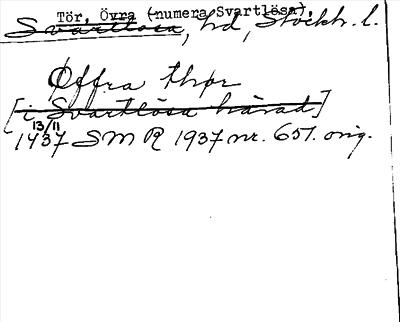 Tör, Övra (numera Svartlösa).
Svartlösa, hd, Stockh. l.
Øffra thør
[i Svartlösa härad]
13/11
1437 SMR 1937 nr. 651. orig.